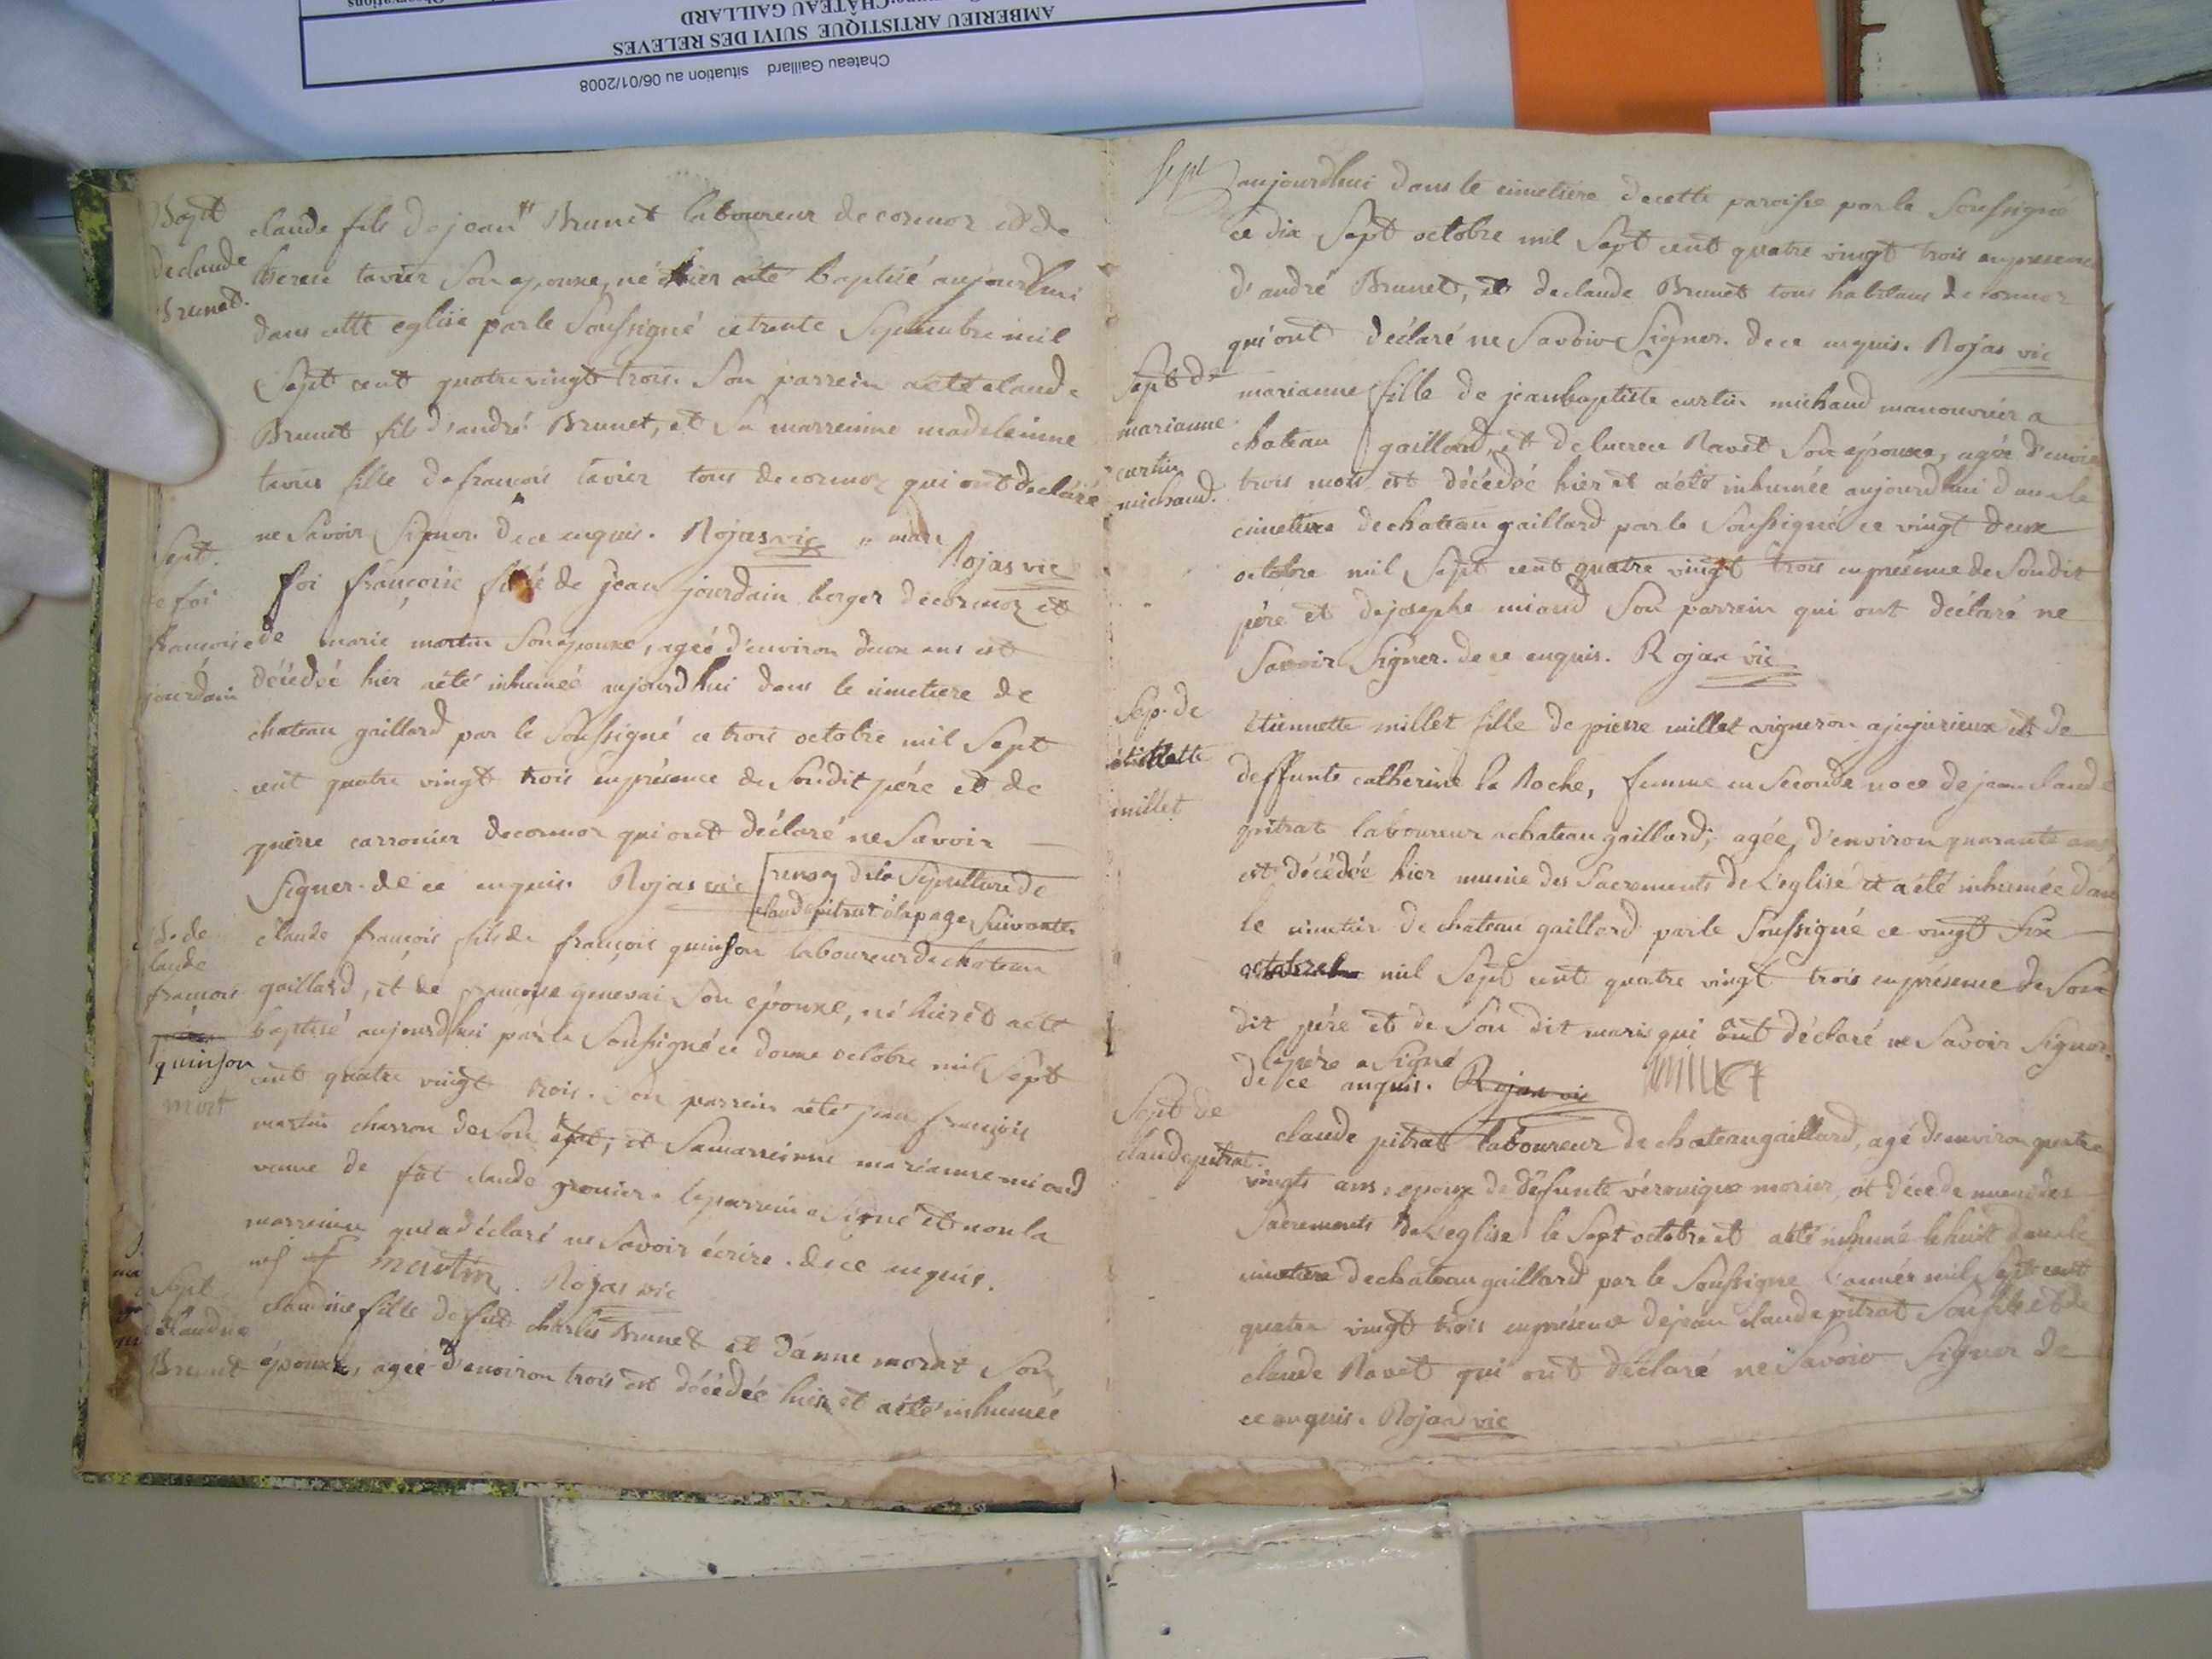 Chateau Gaillard situation au 06/01/2008
AMBERIEU ARTISTIQUE SUIVI DES RELEVES
CHÂTEAU GAILLARD
Bapt
de claude
Brunet.
claude fils de jean Brunet laboureur de cormoz et de
tavier son epouse, né hier a été baptisé aujourdhui
dans cette eglise par le soussigné ce trente septembre mil
sept cent quatre vingt trois. Son parrein a été claude
Brunet fils d'andré Brunet, et sa marreinne madeleinne
tavier fille de francois tavier tous de cormoz qui ont declaré
ne savoir signer. de ce enquis. Rojas vic
Rojas vic
Sept.
de foi
francoise
jourdain
foi françoise fille de jean jourdain berger de cormoz et
de marie martin son epouse, agée d'environ deux ans est
décédée hier a été inhumée aujourdhui dans le cimetiere de
chateau gaillard par le soussigné ce trois octobre mil sept
cent quatre vingt trois en présence de sondit pére et de
pierre carronier de cormoz qui ont déclaré ne savoir
signer. de ce enquis. Rojas vic
renvoy de la sepulture de
claude pitrat a la page suivante
claude
francois
quinson
mort
claude françois fils de françois quinson laboureur de chateau
gaillard, et de françoise genevai son épouse, né hier et a été
baptisé aujourdhui par le soussigné ce douze octobre mil sept
cent quatre vingt trois. Son parrein a été jean françois
martin charron de son et sa marreinne marianne miand
veuve de fut claude gronier. le parrein a signé et non la
marreinne qui a déclaré ne savoir écrire. de ce enquis.
martin. Rojas vic
Sept
claudine
Brunet
claudine fille de fut charles Brunet et d'anne morat son
épouse, agée d'environ trois est décédée hier et a été inhumée
sept
aujourdhui dans le cimetiére de cette paroisse par le soussigné
ce dix sept octobre mil sept cent quatre vingt trois en presence
d'andré Brunet, et de claude Brunet tous habitans de cormoz
qui ont déclaré ne savoir signer. de ce enquis. Rojas vic
Sept de
marianne
curtin
michaud.
marianne fille de jean baptiste curtin michaud manouvrier a
chateau gaillard, et de lucrece Ravet son épouse, agée d'environ
trois mois est décédée hier et a été inhumée aujourdhui dans le
cimetiere de chateau gaillard par le soussigné ce vingt deux
octobre mil sept cent quatre vingt trois en présence de sondit
pére et de josephe miand son parrein qui ont déclaré ne
savoir signer. de ce enquis. Rojas vic
Sep. de
millet
Etiennette millet fille de pierre millet vigneron a jujurieux et de
deffunte catherine la Roche, femme en seconde noce de jean claude
pitrat laboureur a chateau gaillard, agée d'environ quarante ans,
est décédée hier munie des sacrements de l'eglise et a été inhumée dans
le cimetiere de chateau gaillard par le soussigné ce vingt six
octobre mil sept cent quatre vingt trois en présence de son
dit pére et de son dit mari qui ont déclaré ne savoir signer.
le pére a signé
de ce enquis. Rojas vic millet
Sept de
claude pitrat.
claude pitrat laboureur de chateau gaillard, agé d'environ quatre
vingts ans, epoux de défunte véronique morier, est décédé muni des
sacrements de l'eglise le sept octobre et a été inhumé le huit dans le
cimetiere de chateau gaillard par le soussigné l'année mil sept cent
quatre vingt trois en présence de jean claude pitrat son fils et de
claude Ravet qui ont déclaré ne savoir signer de
ce enquis. Rojas vic